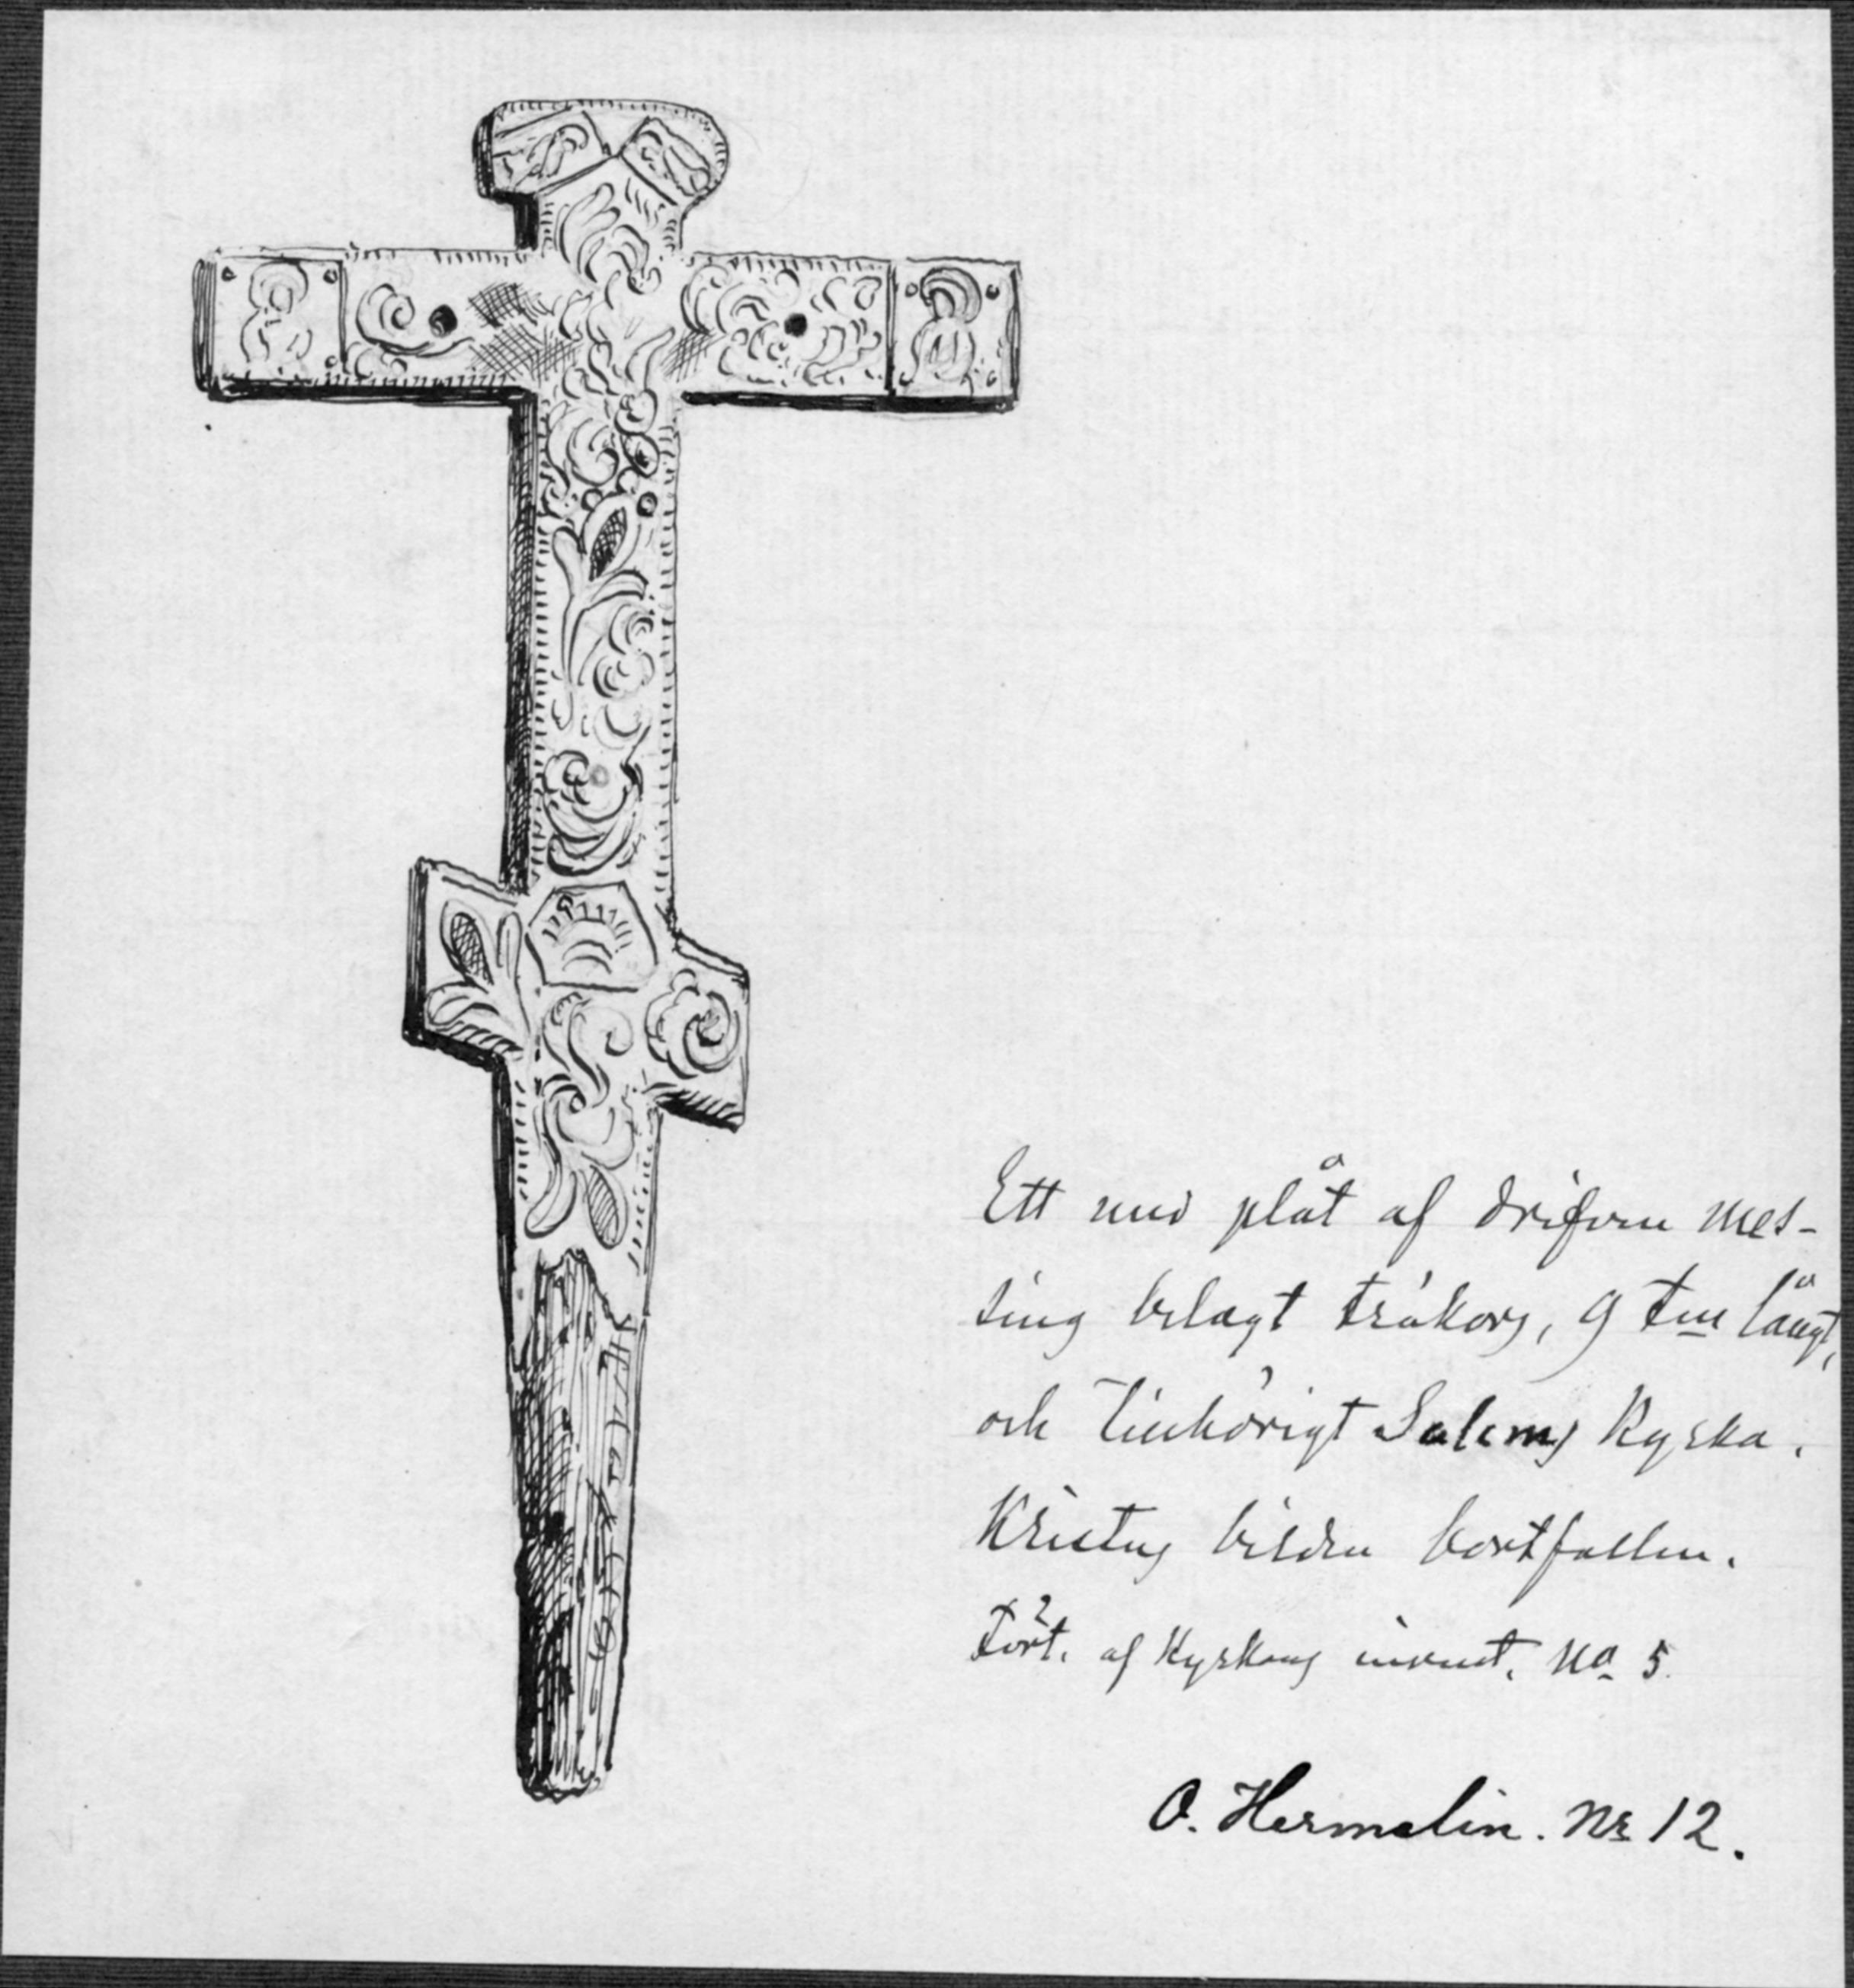 Ett med plåt af drifven mes-
sing belagt träkors, 9 tm långt,
och tillhörigt Salems Kyrka.
Kristus bilden bortfallen.
Fört. af Kyrkans invent. No 5.
O. Hermelin. Nr 12.